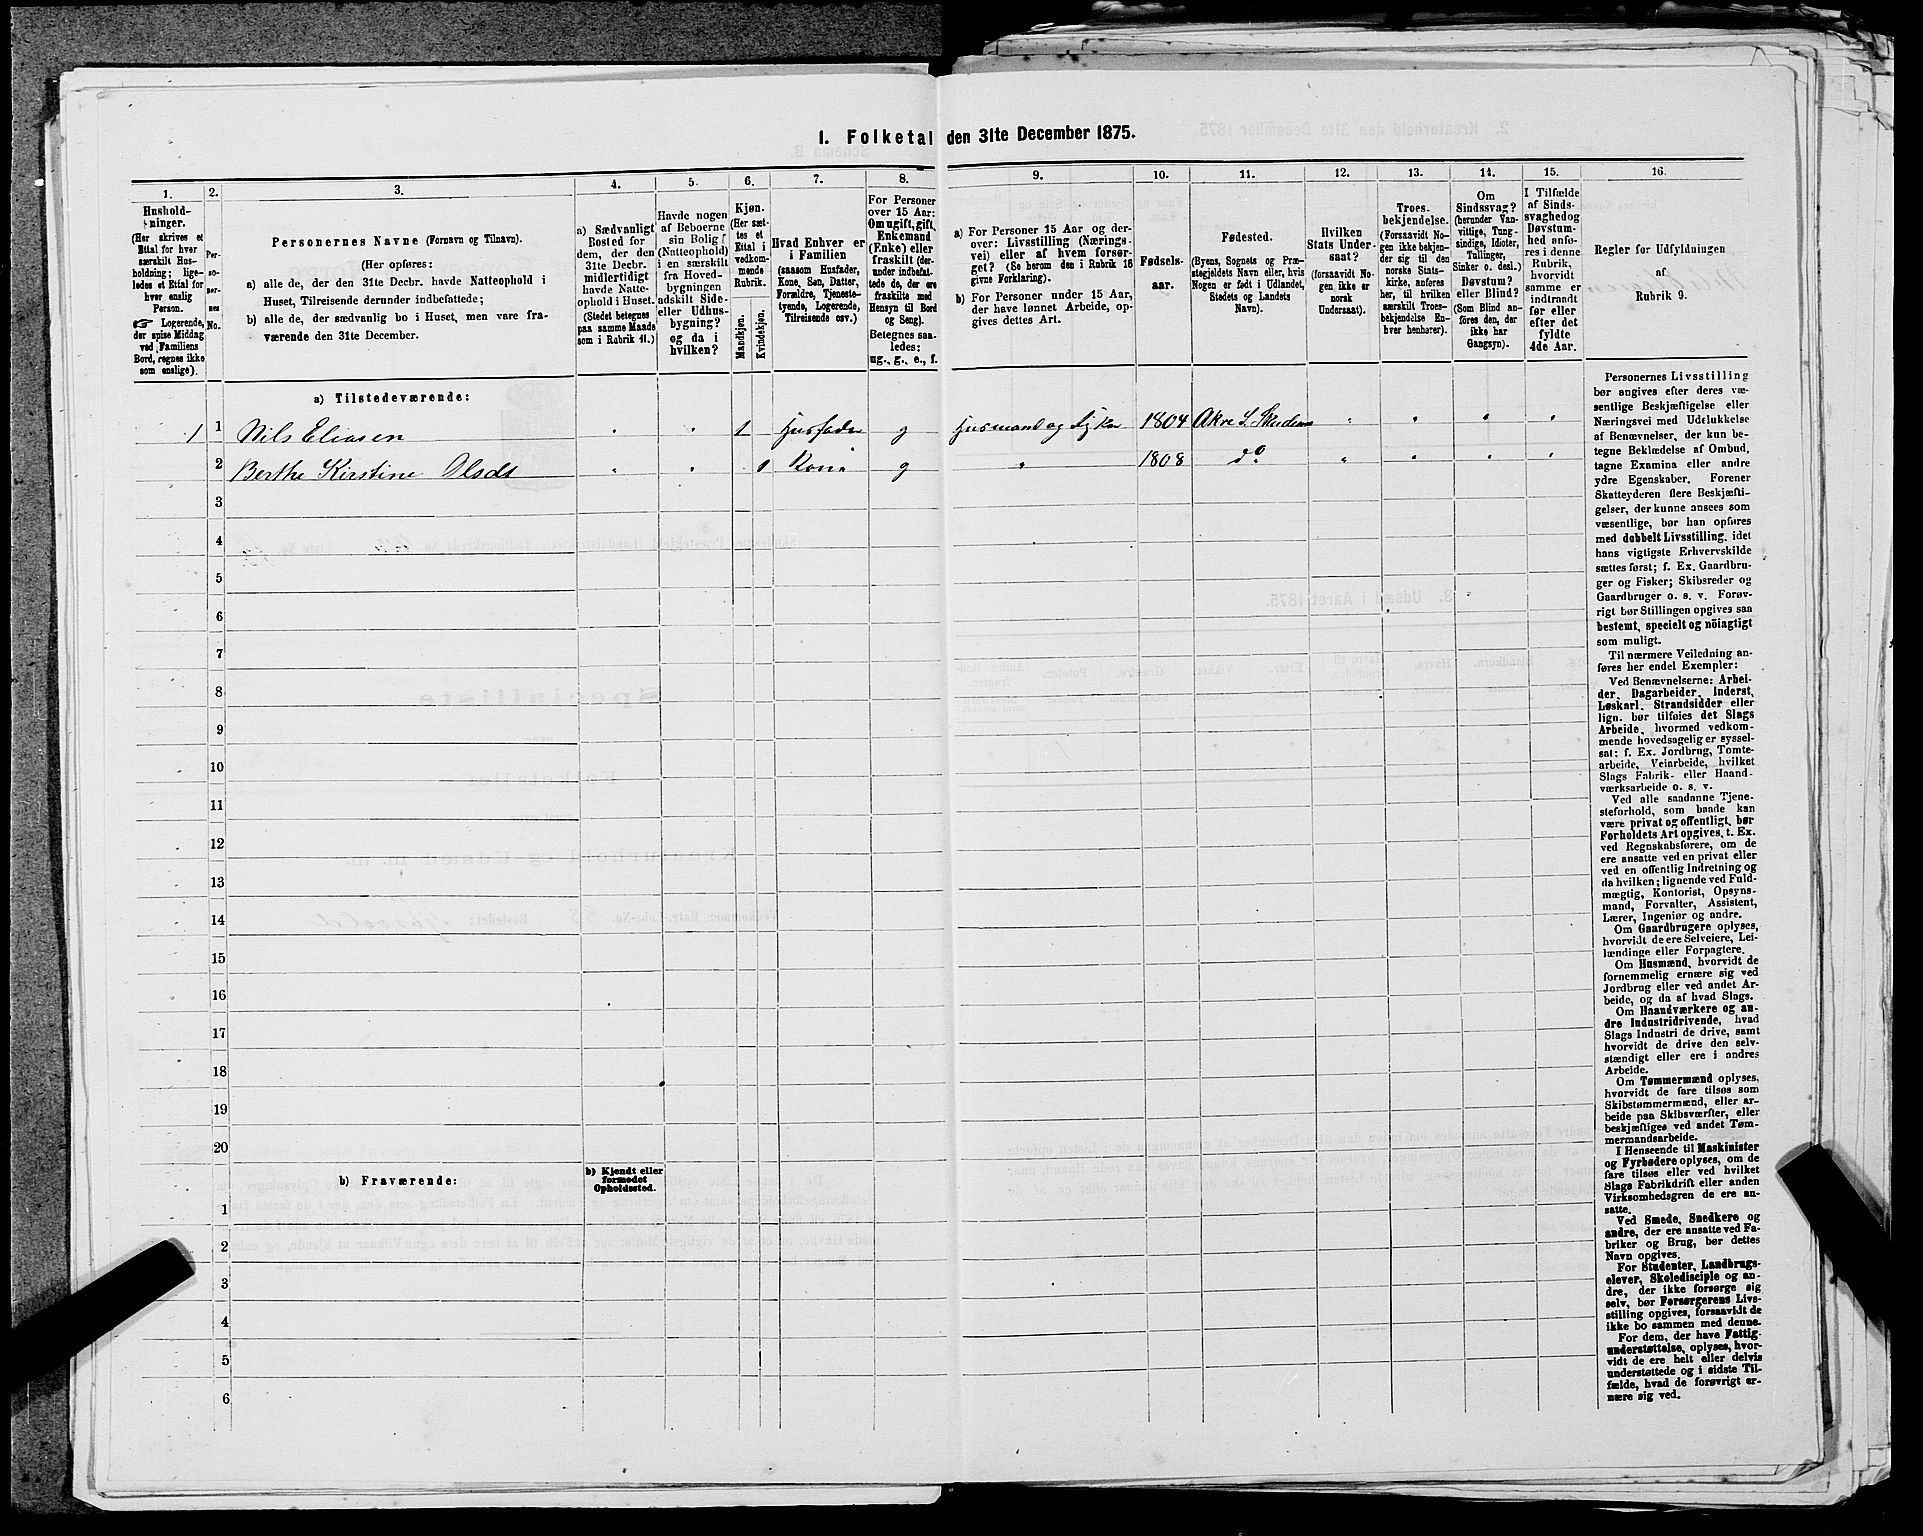 1. Folketal den 31te December 1875.
1.
2.
3.
4.
5.
6.
7.
8.
9.
10.
11.
12.
13.
14.
15.
16.
Hushold-
ninger.
(Her skrives et
Ettal for hver
særskilt Hus-
holdning; lige-
ledes et Ettal for
hver enslig
Person.
☞ Logerende,
der spise Middag
ved Familiens
Bord, regnes ikke
som enslige).
Per-
so-
ner-
nes
No.
Personernes Navne (Fornavn og Tilnavn).
(Her opføres:
a) alle de, der den 31te Decbr. havde Natteophold i
Huset, Tilreisende derunder indbefattede;
b) alle de, der sædvanlig bo i Huset, men vare fra-
værende den 31te December.
a) Sædvanligt
Bosted for
dem, der den
31te Decbr.
midlertidigt
havde Natte-
ophold i Huset.
(Stedet betegnes
paa samme Maade
som i Rubrik 11.)
Havde nogen
af Beboerne
sin Bolig
(Natteophold)
i en særskilt
fra Hoved-
bygningen
adskilt Side-
eller Udhus-
bygning?
og da i
hvilken?
Kjøn.
(Her sæt-
tes et
Ettal i
vedkom-
mende
Rubrik.
Mandkjøn.
Kvindekjøn.
Hvad Enhver er
i Familien
(saasom Husfader,
Kone, Søn, Datter,
Forældre, Tjeneste-
tyende, Logerende,
Tilreisende osv.)
For Personer
over 15 Aar:
Om ugift, gift,
Enkemand
(Enke) eller
fraskilt (der-
under indbefat-
tede de, der ere
fraskilte med
Hensyn til Bord
og Seng).
Betegnes saa-
ledes:
ug., g., e., f.
a) For Personer 15 Aar og der-
over: Livsstilling (Nærings-
vei) eller af hvem forsør-
get? (Se herom den i Rubrik 16
givne Forklaring).
b) For Personer under 15 Aar,
der have lønnet Arbeide, op-
gives dettes Art.
Fødsels-
aar.
Fødested.
(Byens, Sognets og Præ-
stegjeldets Navn eller, hvis
Nogen er født i Udlandet,
Stedets og Landets
Navn).
Hvilken
Stats Under-
saat?
(forsaavidt No-
gen ikke er
norsk
Undersaat).
Troes-
bekjendelse.
(Forsaavidt No-
gen ikke bekjen-
der sig til den
norske Stats-
kirke, anføres
her, til hvilken
særskilt Troes-
bekjendelse En-
hver henhører).
Om
Sindssvag?
(herunder Van-
vittige, Tung-
sindige, Idioter,
Tullinger,
Sinker o. desl.)
Døvstum?
eller Blind?
(Som Blind an-
føres den, der
ikke har
Gangsyn).
I Tilfælde
af Sinds-
svaghed og
Døvstum-
hed anfø-
res i denne
Rubrik,
hvorvidt
samme er
indtraadt
før eller
efter det
fyldte
4de Aar.
Regler for Udfyldningen
af
Rubrik 9.
a) Tilstedeværende:
1 1 Nils Eliasen " " 1 Husfader g 1804 " " " "
2 Berthe Kirstine Olsdt " " 1 Kone g " 1808 do " " " "
3
4
5
6
7
8
9
10
11
12
13
14
15
16
17
18
19
20
b) Fraværende:
b) Kjendt eller
formodet
Opholdssted.
1
2
3
4
5
6
Personernes Livsstilling
bør angives efter deres væ-
sentlige Beskjæftigelse eller
Næringsvei med Udelukkelse
af Benævnelser, der kun be-
tegne Beklædelse af Ombud,
tagne Examina eller andre
ydre Egenskaber. Forener
Skatteyderen flere Beskjæfti-
gelser, der kunne ansees som
væsentlige, bør han opføres
med dobbelt Livsstilling, idet
hans vigtigste Erhvervskilde
sættes først; f. Ex. Gaardbru-
ger og Fisker; Skibsreder og
Gaardbruger o. s. v. Forøv-
rigt bør Stillingen opgives saa
bestemt, specielt og nöiagtigt
som muligt.
Til nærmere Veiledning an-
føres her endel Exempler:
Ved Benævnelserne: Arbei-
der, Dagarbeider, Inderst,
Løskarl, Strandsidder eller
lign. bør tilføies det Slags
Arbeide, hvormed vedkom-
mende hovedsagelig er syssel-
sat: f. Ex. Jordbrug, Tomte-
arbeide, Veiarbeide, hvilket
Slags Fabrik- eller Haand-
værksarbeide o. s. v.
Ved alle saadanne Tjene-
steforhold, som baade kan
være privat og offentligt, bør
Forholdets Art opgives, t. Ex.
ved Regnskabsførere, om de
ere ansatte ved en privat eller
ved en offentlig Indretning og
da hvilken; lignende ved Fuld-
mægtig, Kontorist, Opsyns-
mand, Forvalter, Assistent,
Lærer, Ingeniør og andre.
Om Gaardbrugere oplyses,
hvorvidt de ere Selveiere, Lei-
lændinge eller Forpagtere.
Om Husmænd, hvorvidt de
fornemmelig ernære sig ved
Jordbrug eller ved andet Ar-
beide, og da af hvad Slags.
Om Haandværkere og an-
dre Industridrivende, hvad
Slags Industri de drive, samt
hvorvidt de drive den selv-
stændigt eller ere i andres
Arbeide.
Om Tømmermænd oplyses,
hvorvidt de fare tilsøs som
Skibstømmermænd, eller ar-
beide paa Skibsværfter, eller
beskjæftiges ved andet Tøm-
mermandsarbeide.
I Henseende til Maskinister
og Fyrbødere oplyses, om de
fare tilsøs eller ved hvilket
Slags Fabrikdrift eller anden
Virksomhedsgren de ere an-
satte.
Ved Smede, Snedkere og
andre, der ere ansatte ved Fa-
briker og Brug, bør dettes
Navn opgives.
For Studenter, Landbrugs-
elever, Skoledisciple og an-
dre, der ikke forsørge sig
selv, bør Forsørgerens Livs-
stilling opgives, forsaavidt de
ikke bo sammen med denne.
For dem, der have Fattig-
understøttelse, oplyses, hvor-
vidt de ere helt eller delvis
understøttede og i sidste Til-
fælde, hvad de forøvrigt er-
nære sig ved.